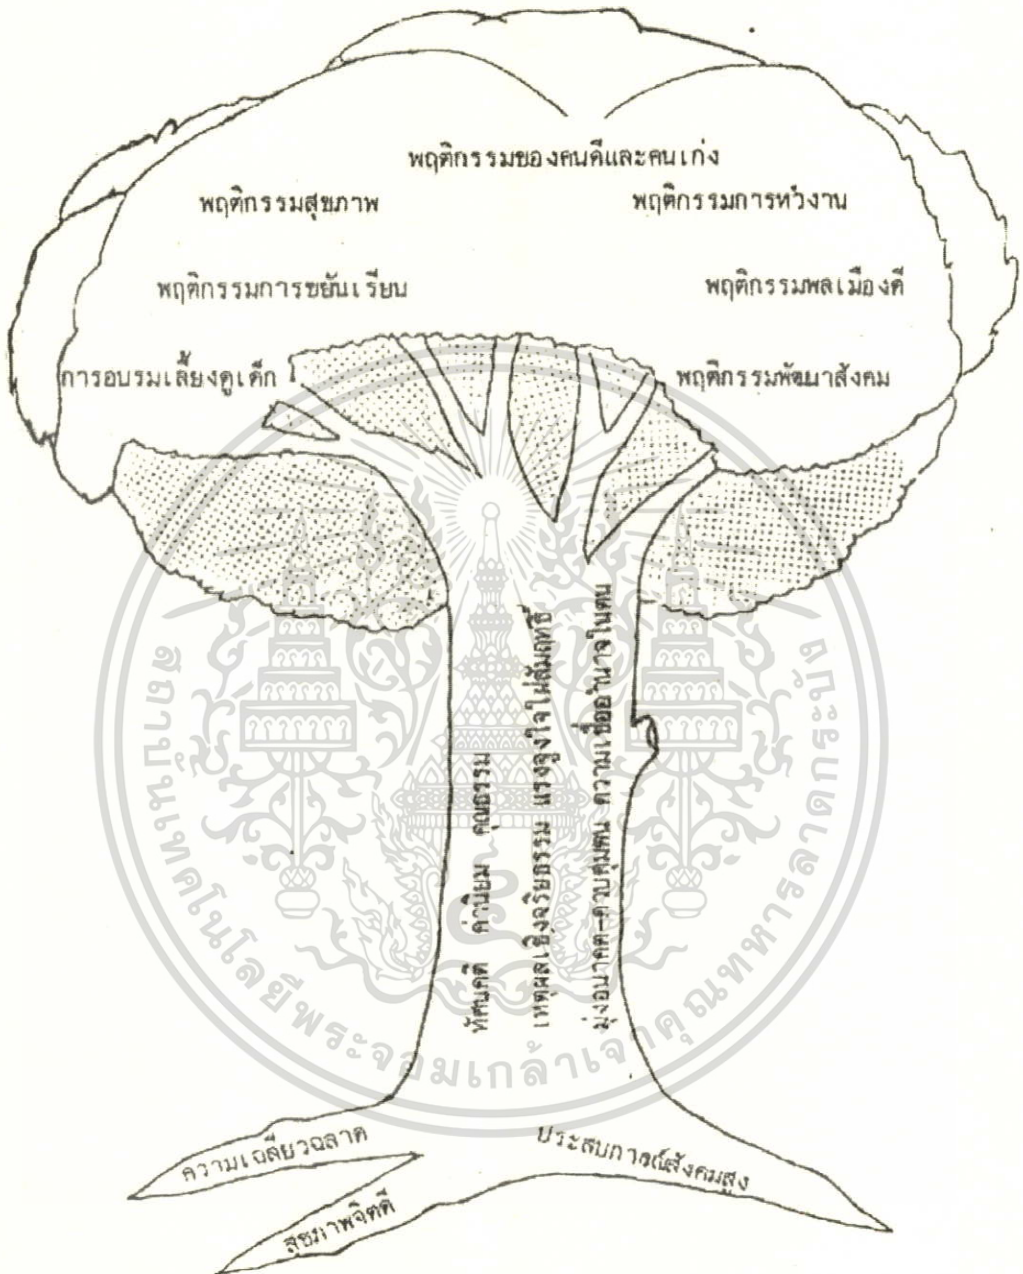 พฤติกรรมของคนดีและคนเก่ง
พฤติกรรมสุขภาพ
พฤติกรรมการทำงาน
พฤติกรรมการขยันเรียน
พฤติกรรมพลเมืองดี
การอบรมเลี้ยงดูเด็ก
พฤติกรรมพัฒนาสังคม
ทัศนคติ ค่านิยม คุณธรรม
เหตุผลเชิงจริยธรรม แรงจูงใจใฝ่สัมฤทธิ์
มุ่งอนาคต-ควบคุมตน ความเชื่ออำนาจในตน
ความเฉลียวฉลาด
ประสบการณ์สังคมสูง
สุขภาพจิตดี
สถาบันเทคโนโลยีพระจอมเกล้าเจ้าคุณทหารลาดกระบัง